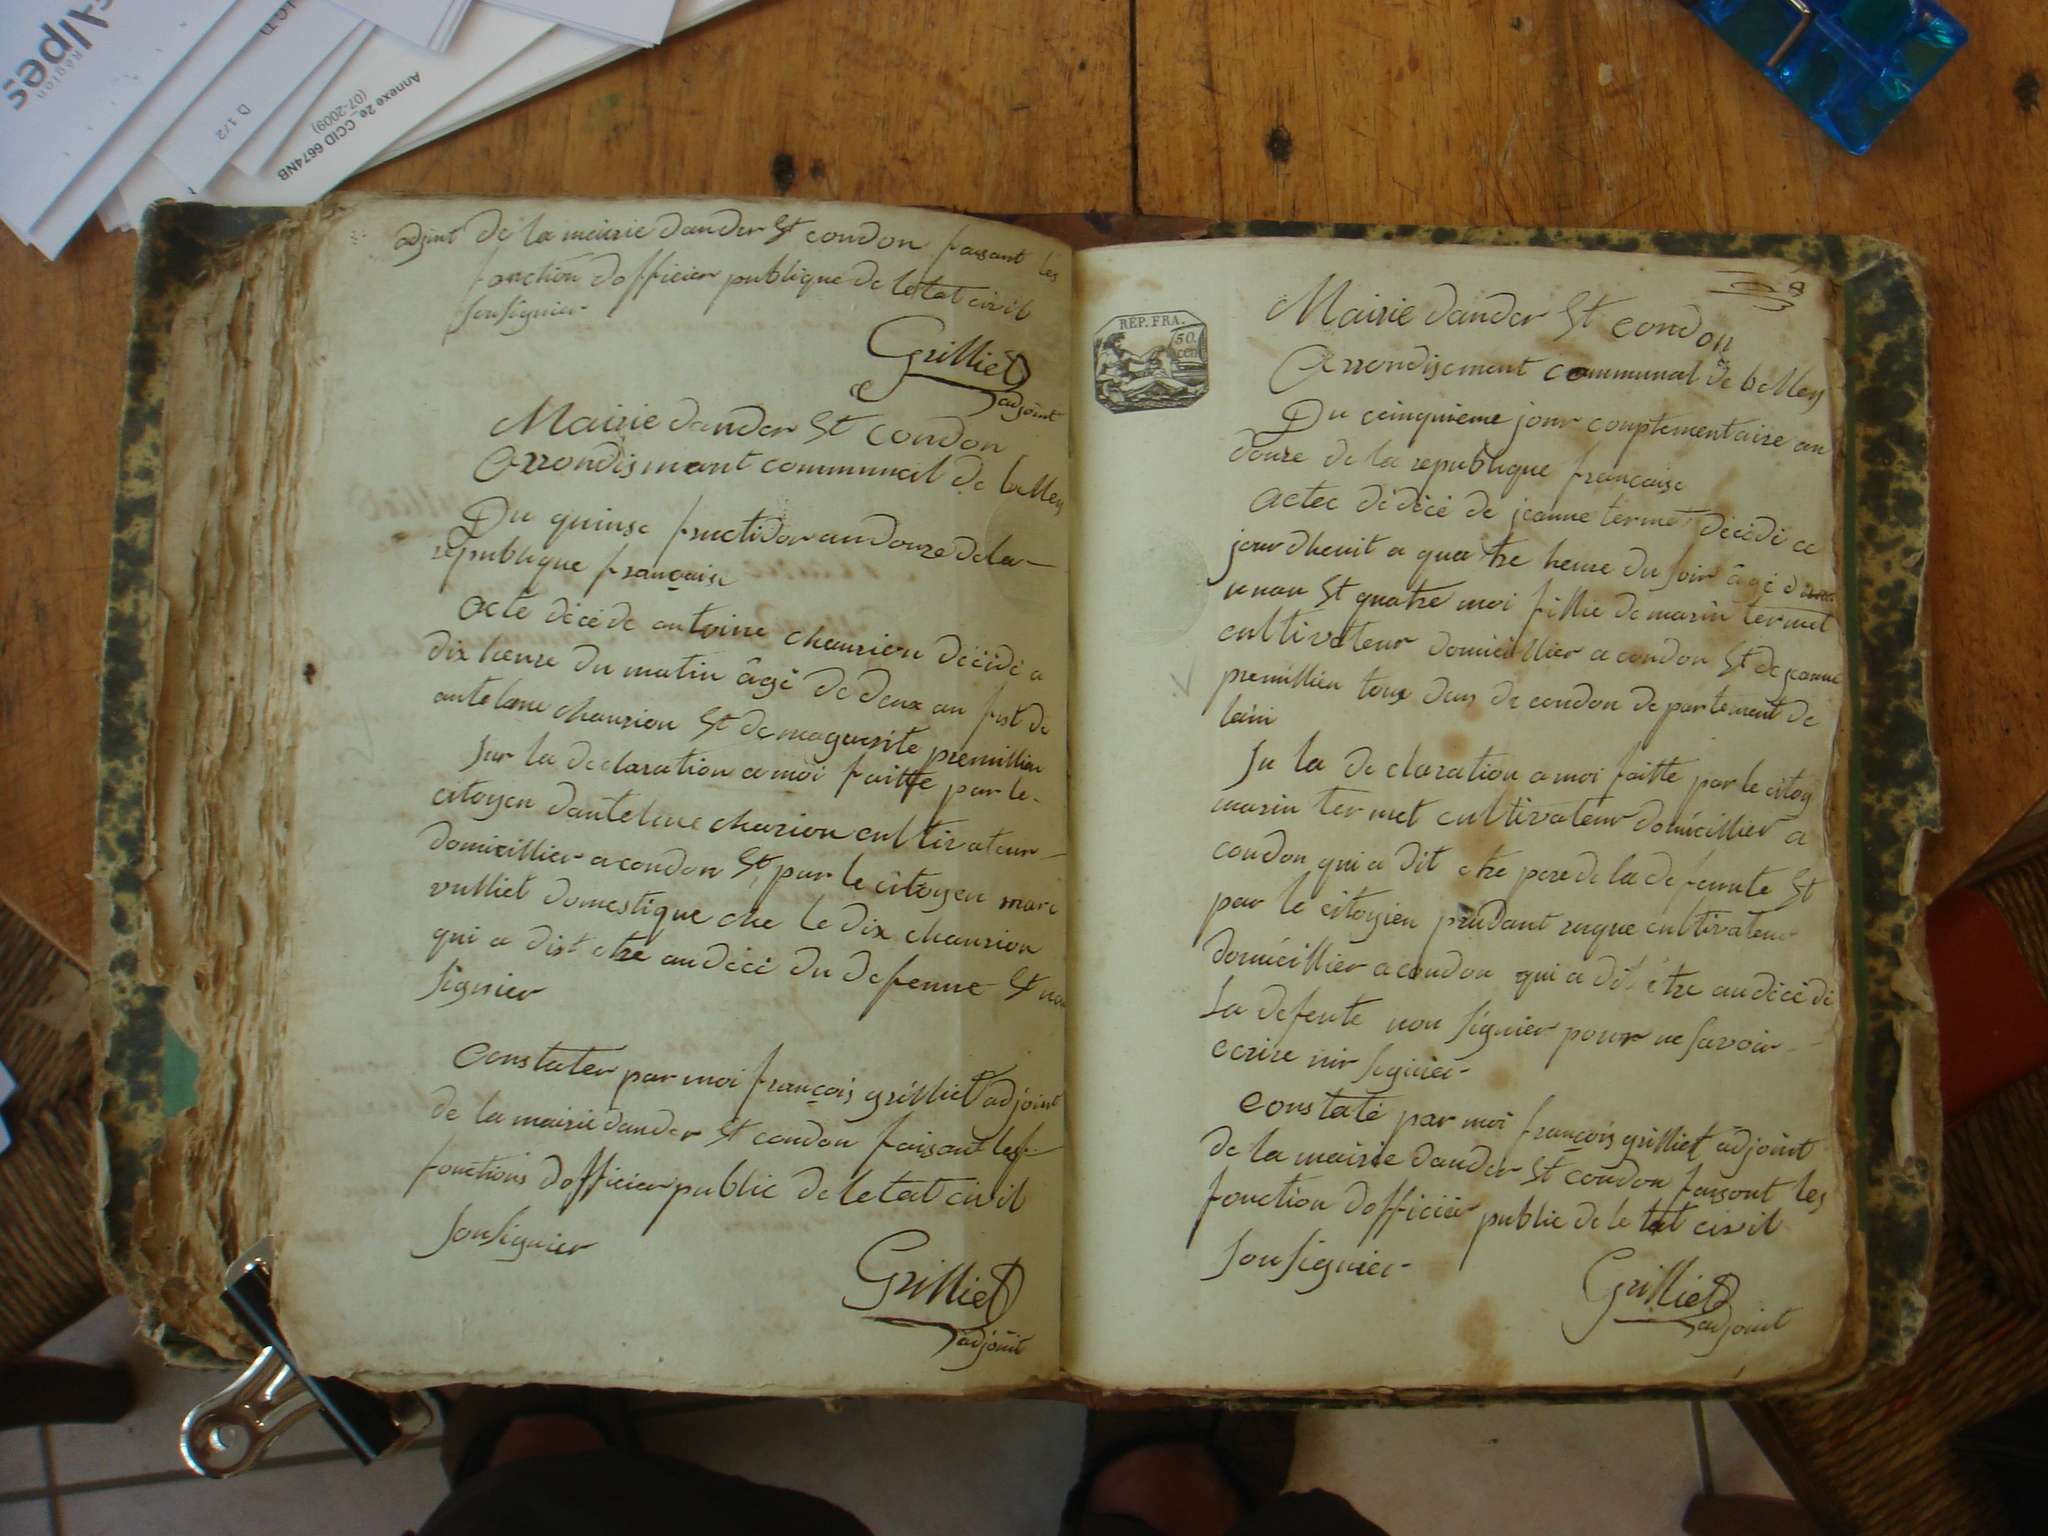 Alpes
Région
D 1/2
Annexe 2e_CCID 6674NB
(07-2009)
adjoint de la meirie dander St condon faisant les
fonction dofficier publique de letat civil
sousignier
Grilliet
adjoint
Mairie dander St condon
Arrondismant communal de belley
Du quinse fructidor an douze de la
republique française
Acte décé de antoine chaurion décidé a
dix heure du matin âgé de deux an fist de
antelme chaurion St de maguerite premillieu
sur la declaration a moi faitte par le
citoyen dantelme charion cultivateur
domicillier a condon St par le citoyen marc
vulliet domestique che le dix chaurion
qui a dist etre au décé du defenne St non
signier
Constater par moi françois grilliet adjoint
de la mairie dander St condon faisant les
fonctions dofficier public de letat civil
sousignier
Grilliet
adjoint
8
REP. FRA.
50.
cen
Mairie dander St condon
Arrondisement communal de belley
Du ceinquieme jour couplementaire an
douze de la republique française
Actec décécé de jeanne termet décédé ce
jour dheuit a quatre heure du soir âgé
unan St quatre moi fillie de marin termet
cultivateur domicillier a condon St de jeanne
premillieu tous deus de condon departement de
lain
Su la declaration a moi faitte par le citoy
marin termet cultivateur domicillier a
condon qui a dit etre pere de la defunte St
par le citoyien prudant ruque cultivateur
domicillier a condon qui a dit être au décé dé
La defente non signier pour ne savoir
ecrire nir signier
Constaté par moi françois grilliet adjoint
de la mairie dander St condon faisont les
fonction dofficier public de letat civil
sousignier
Grilliet
adjoint